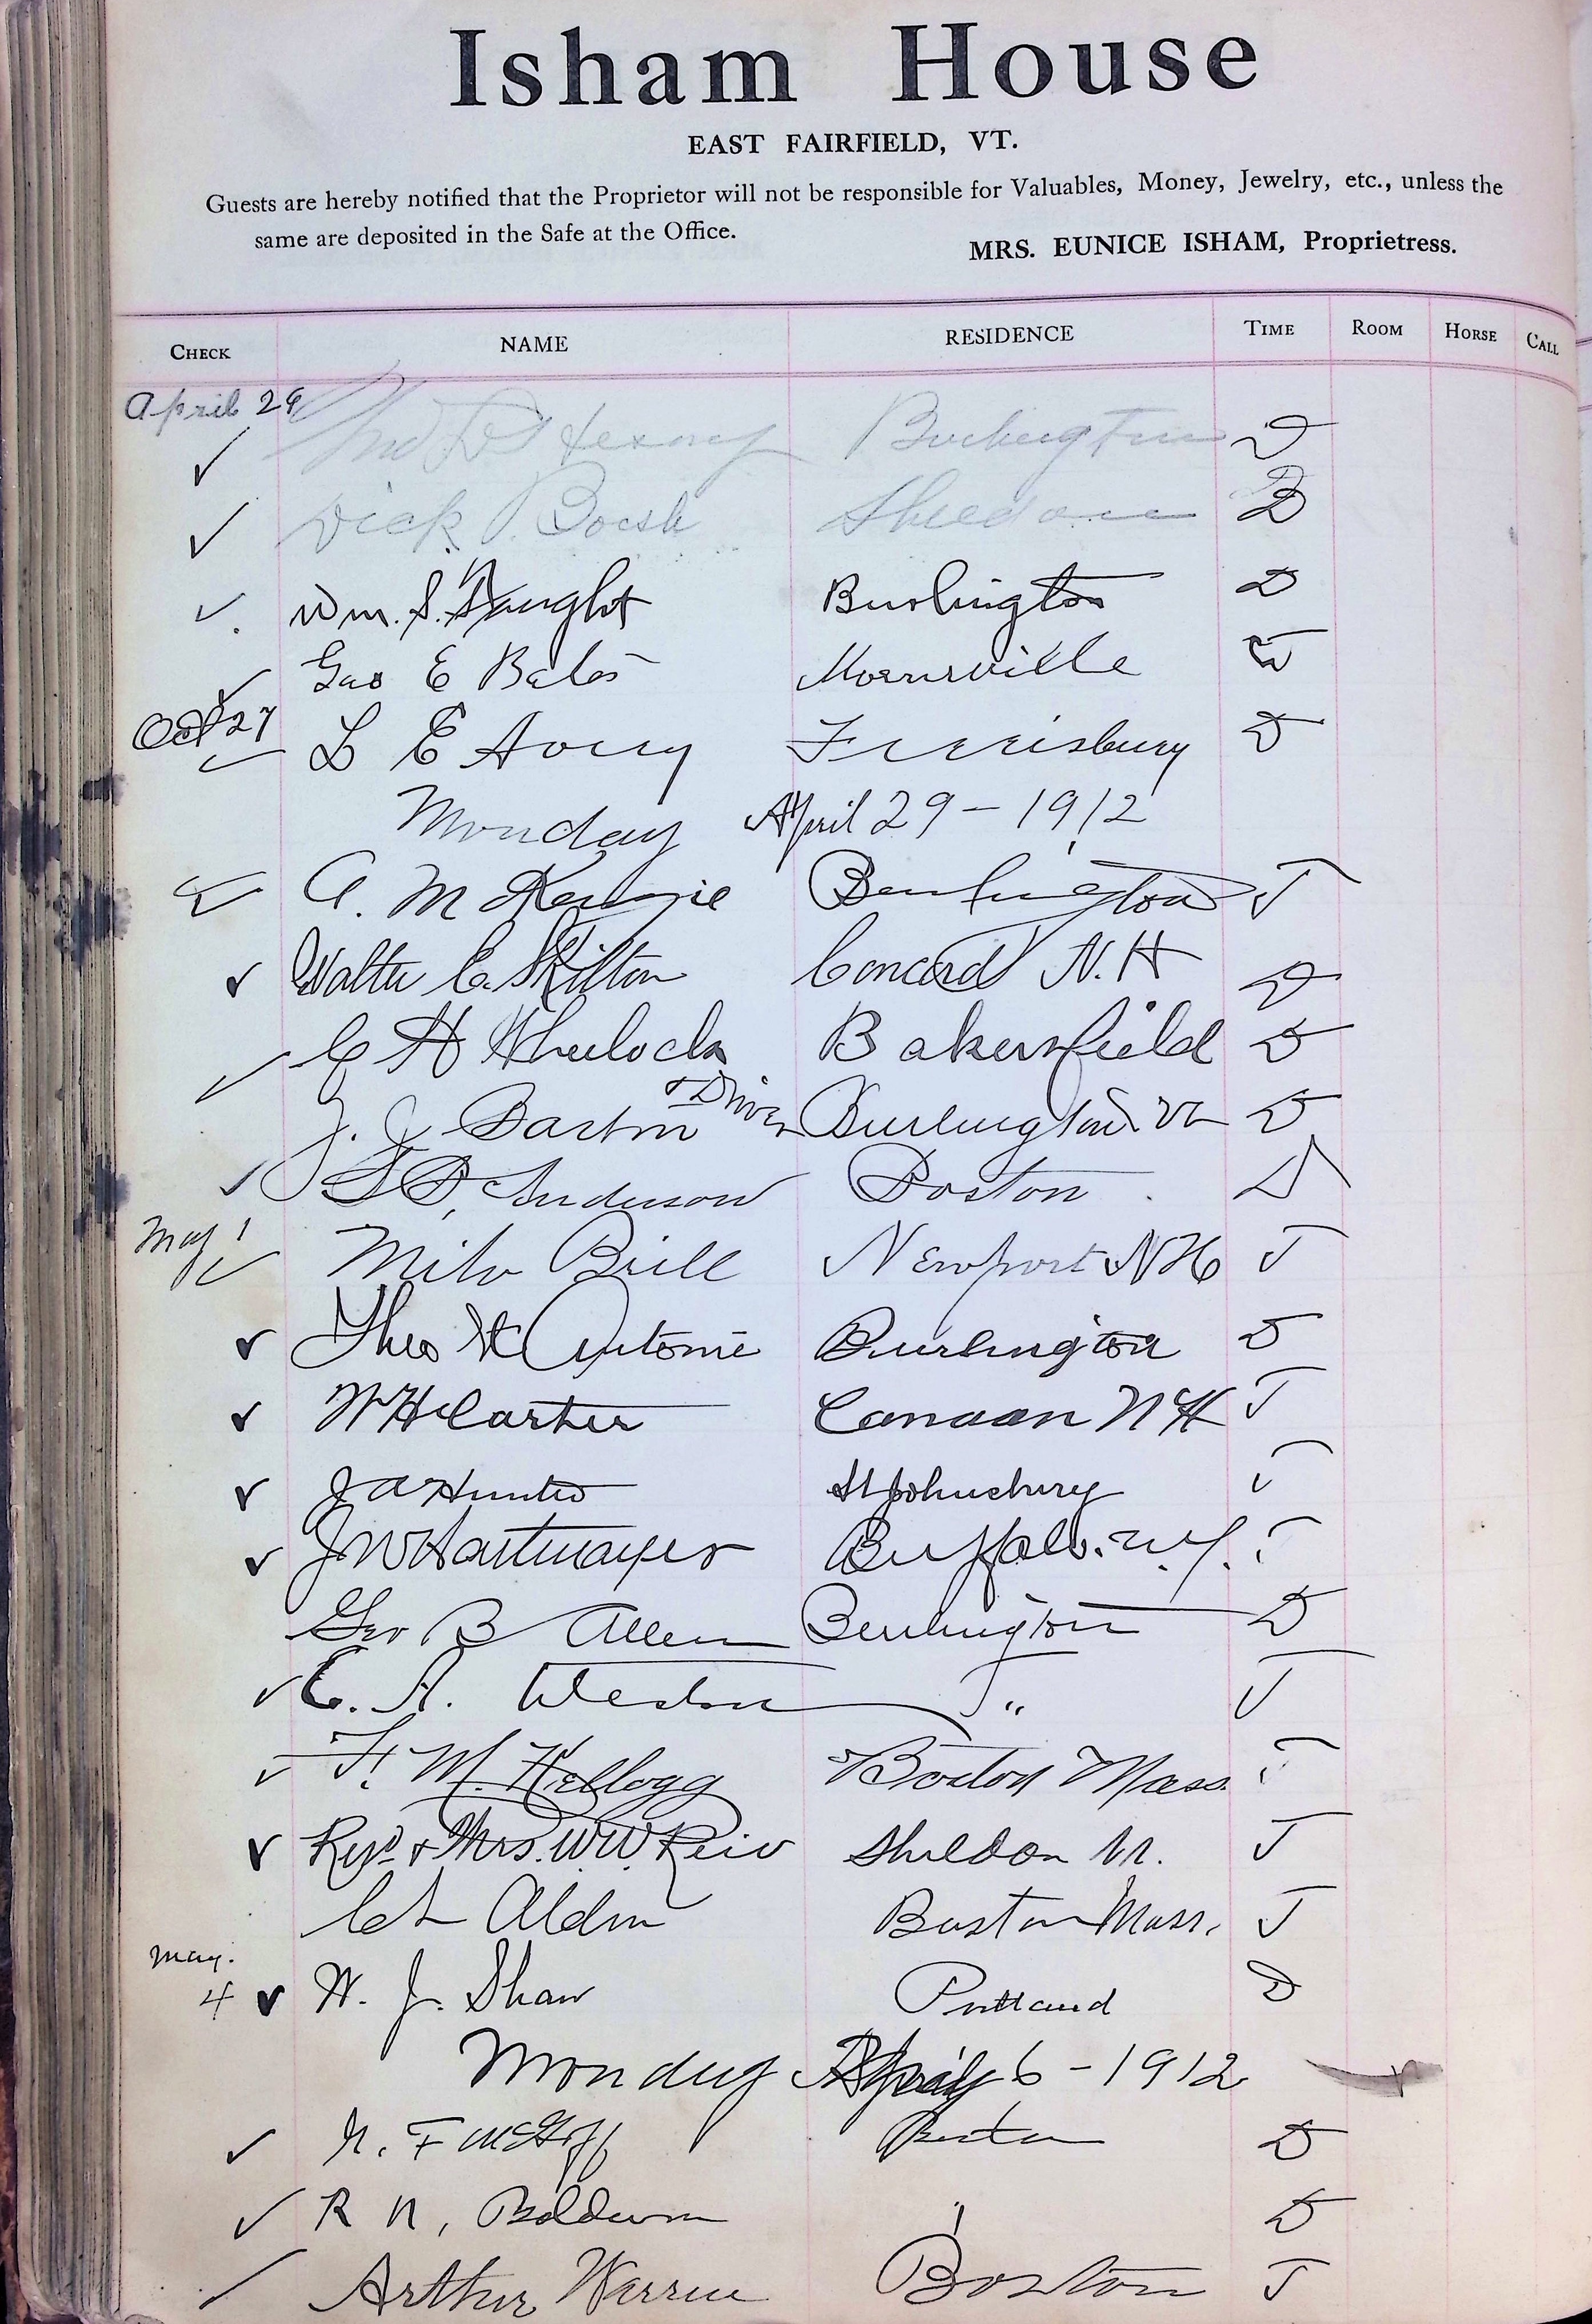 Isham House
EAST FAIRFIELD, VT.
Guests are hereby notified that the Proprietor will not be responsible for Valuables, Money, Jewelry, etc., unless the
same are deposited in the Safe at the Office.
MRS. EUNICE ISHAM, Proprietress.
CHECK NAME RESIDENCE TIME ROOM HORSE CALL
April 26 Burlington D
Dick Sheldon D
Wm. S. Burlington D
Geo E Bates Morrisville
Oct 27 L E Avery Ferrisburg D
Monday April 29 - 1912
A. McKenzie Burlington T
Walter C. Skilton Concord N.H D
C H Wheelock Bakersfield D
J. J. Barton & Driver Burlington Vt D
Anderson Boston D
May 1 Milo Brill Newport NH T
Theo H Antome Burlington D
W H Carter Canaan NH T
J A Hunter St Johnsbury T
J W Hartmayer Buffalo. N.Y. T
Geo B Allen Burlington D
C. A. Weston " T
F. M. Kellogg Boston Mass. T
Revd & Mrs. W.W. Reid Sheldon Vt. T
Alden Boston Mass. T
May. 4 W. J. Shaw Portland D
Monday 6 - 1912
Boston D
R N, Baldwin " D
Arthur Warren Boston T